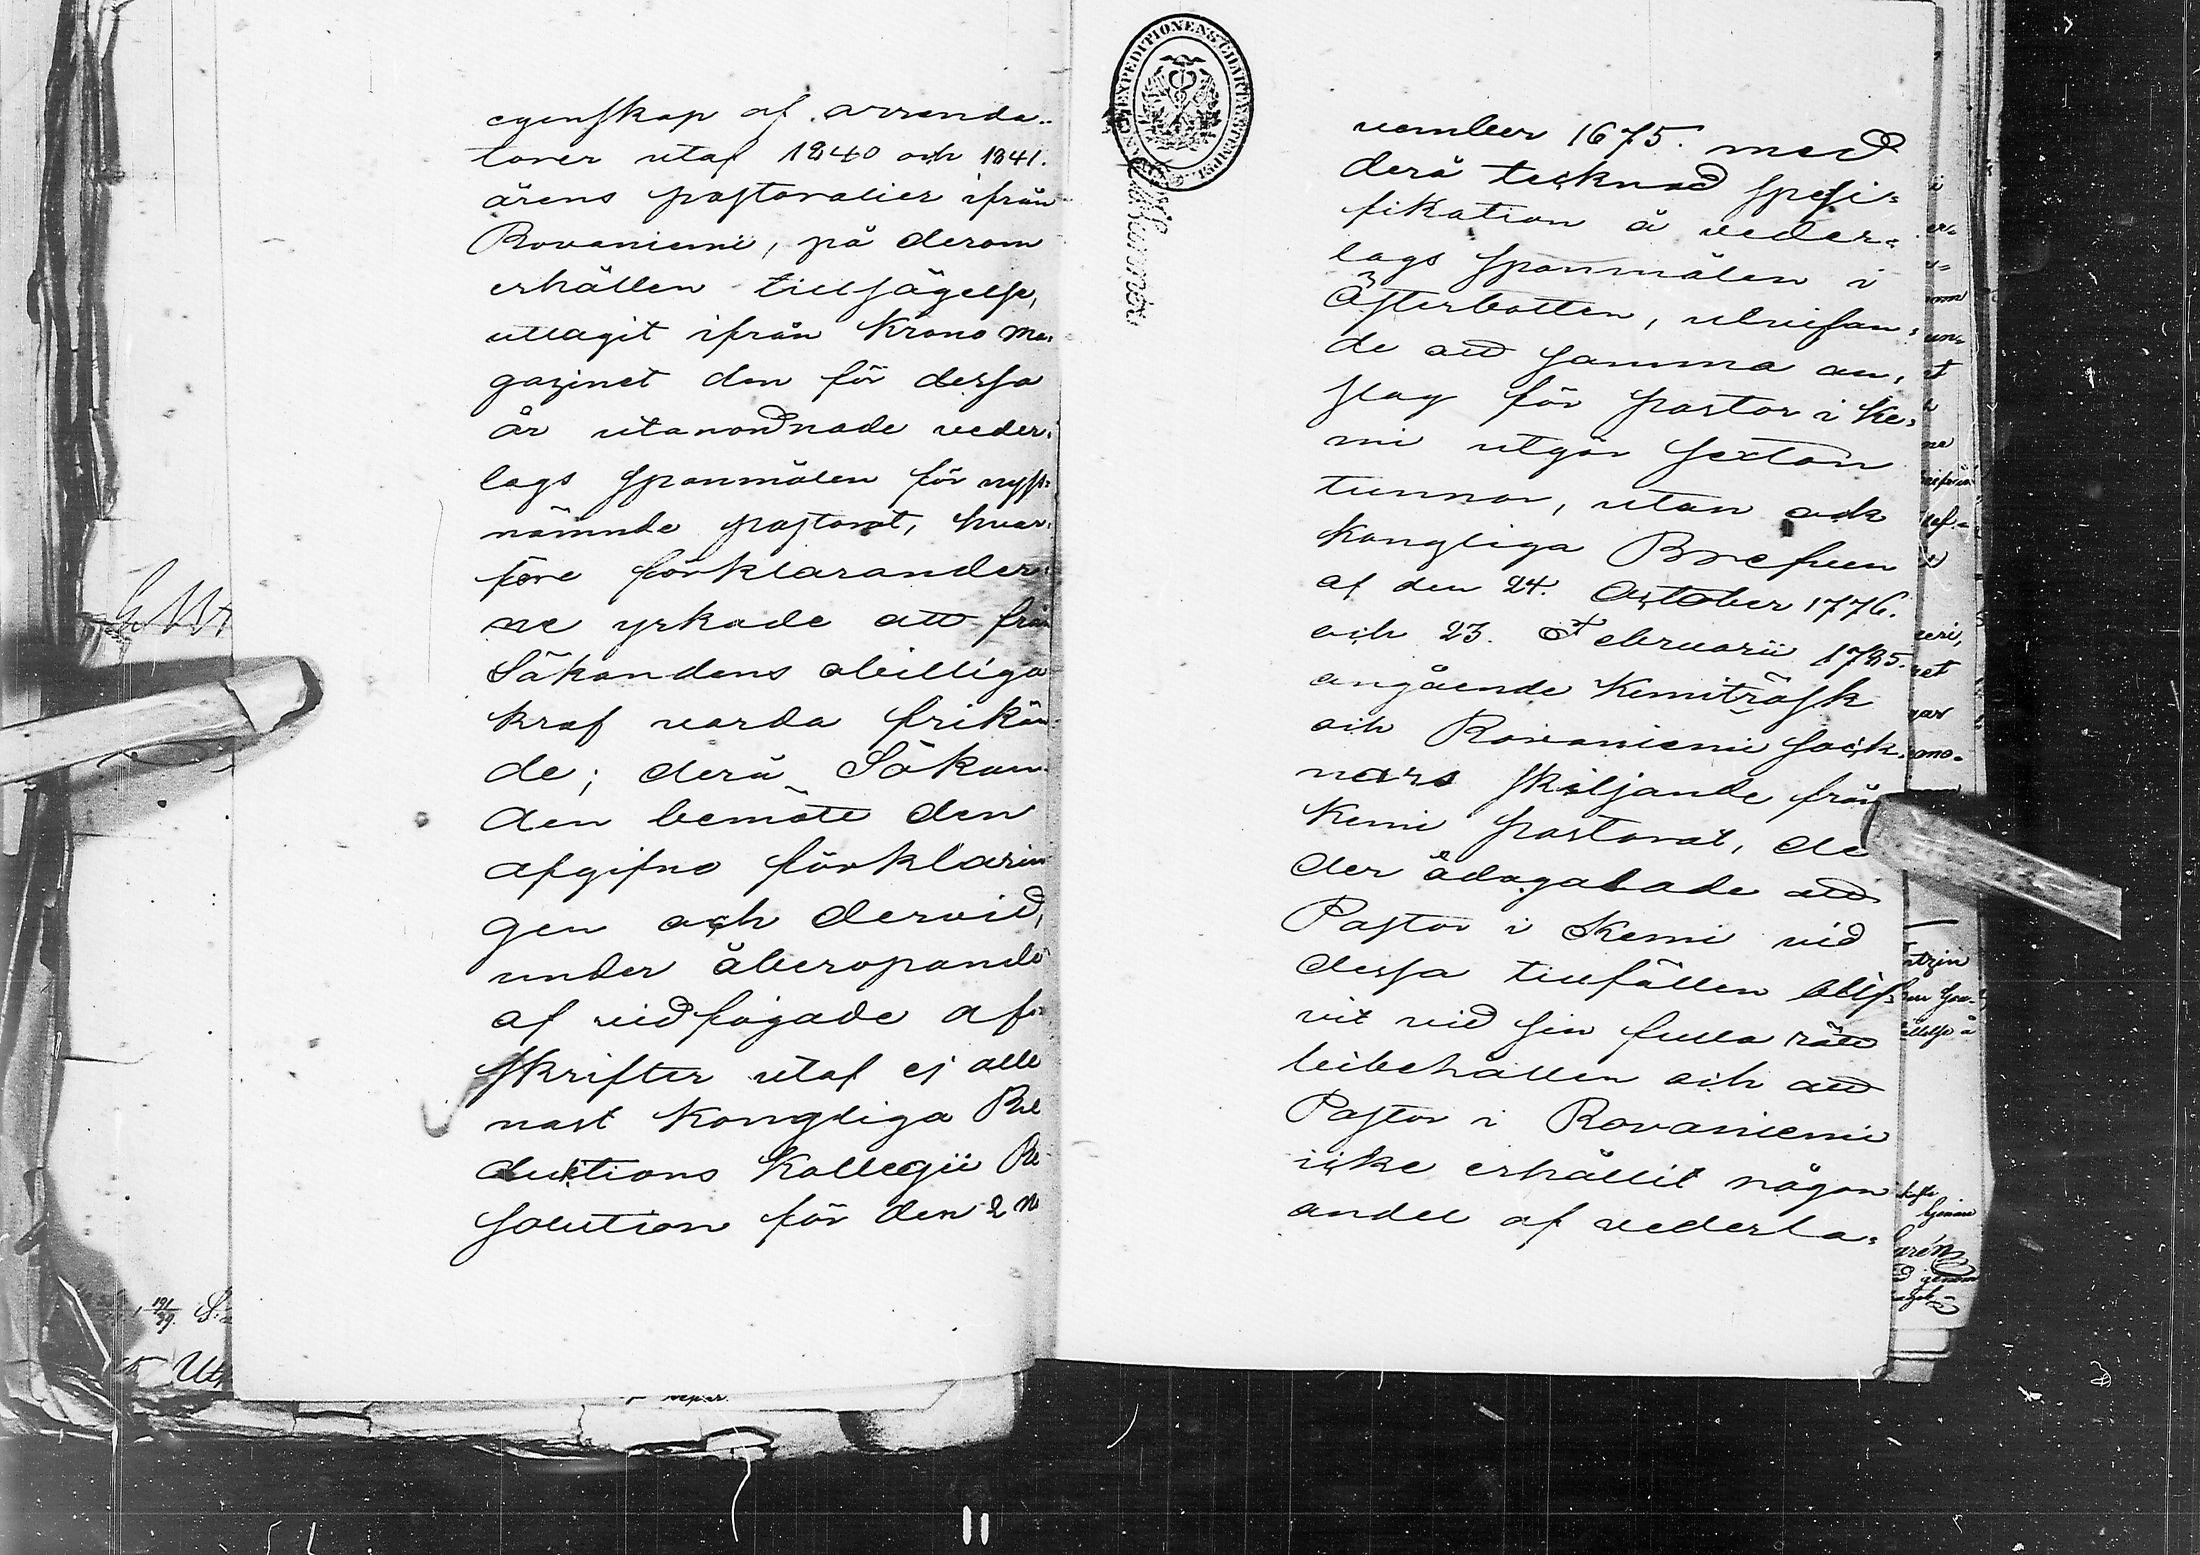 egenskap af arrenda-
torer utaf 1840 och 1841.
årens pastoralier ifrån
Rovaniemi, på derom
erhållen tillsägelse,
uttagit ifrån Krono Ma-
gazinet den för dessa
år utanordnade veder-
lags spanmålen för nyss-
nämnde pastorat, hvar-
före förklarander-
ne yrkade att från
Sökandens obilliga
kraf varda frikän-
de; derå Sökan-
den bemötte den
afgifna förklarin-
gen och dervid,
under åberopande
af vidfogade af-
skrifter utaf ej alle-
nast Kongliga Re-
duktions Kollegii Re-
solution för den 2 No
vember 1675. med
derå tecknad spesi-
fikation å veder-
lags spanmålen i
Österbotten, utvisan-
de att samma an-
slag för pastor i Ke-
mi utgör sexton
tunnor, utan ock
Kongliga Brefven
af den 24. October 1776.
och 23. Februarii 1785.
angående Kemiträsk
och Rovaniemi sock-
nars skiljande från
Kemi pastorat, de
der ådagalade att
Pastor i Kemi vid
dessa tillfällen blif-
vit vid sin fulla rätt
bibehållen och att
Pastor i Rovaniemi
icke erhållit någon
andel af vederla-